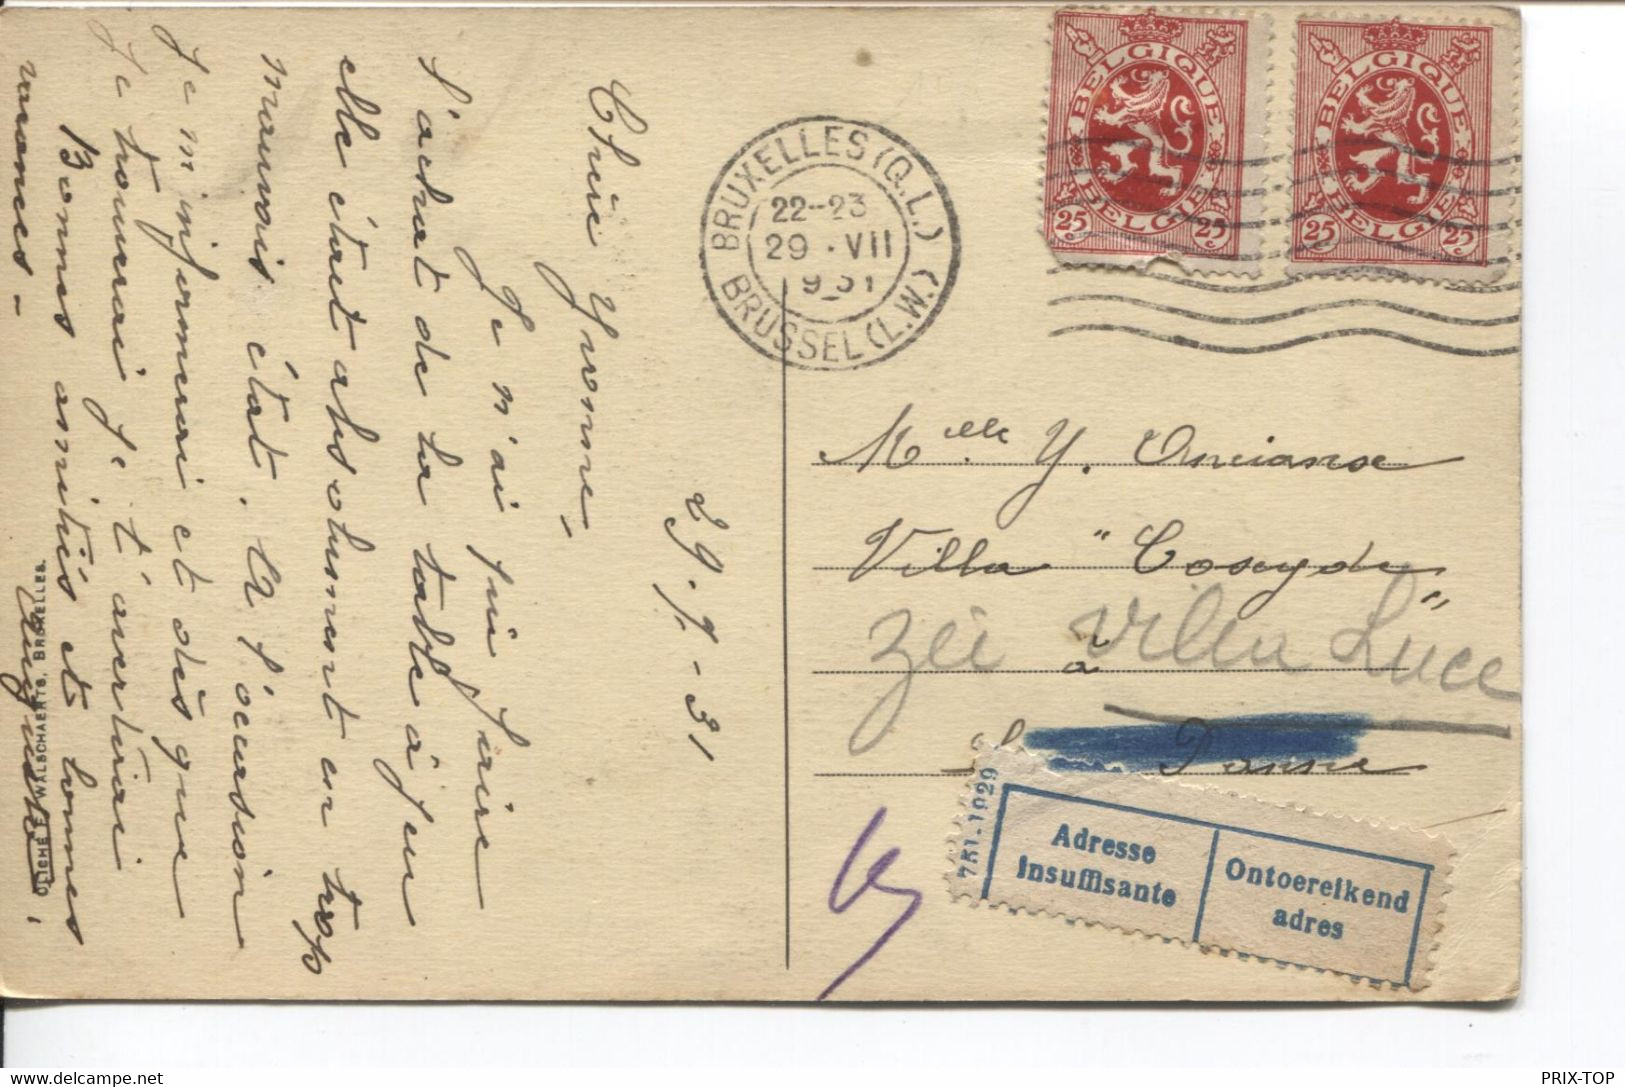 29.7.-31
Chère Yvonne,
Je n'ai pu faire
l'achat de la table à jeu
elle étant absolument en trop
mauvais état. A l'occasion
je m'informerai et dès que
je trouverai je t'avertirai
Bonnes amitiés et bonnes
vacances -
CLICHÉ E. WALSCHAERTS, BRUXELLES.
BRUXELLES (Q.L.)
22-23
29 · VII
1931
BRUSSEL (L.W.)
BELGIQUE
BELGIE
25c 25c
BELGIQUE
BELGIE
25c 25c
Melle Y.
Villa "Cosyde"
Zie Villa Luce
à
La Panne
751-1929
Adresse
insuffisante
Ontoereikend
adres
delcampe.net
PRIX-TOP